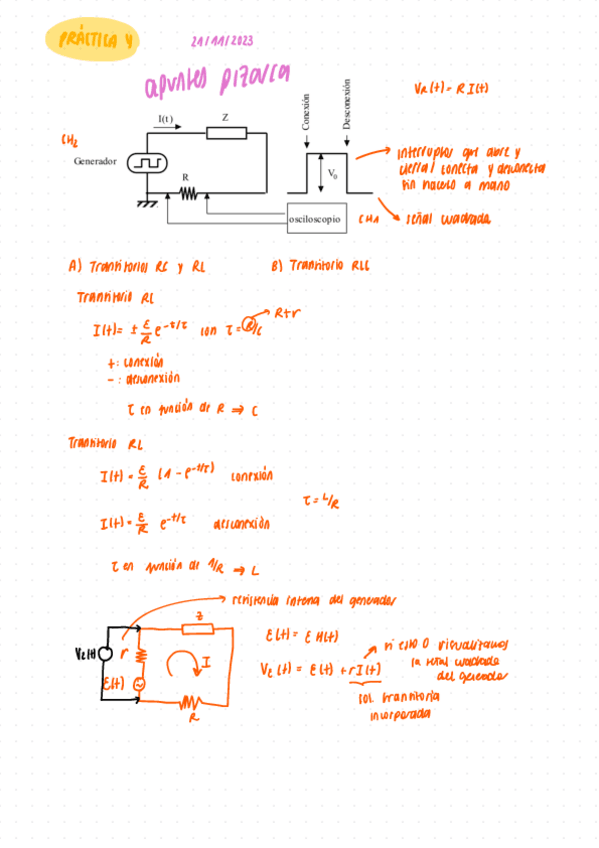 PRÁCTICA 4
21/11/2023
apuntes pizarra
VR(t) = R I(t)
Conexión
Desconexión
I(t)
Z
CH2
Generador
R
V0
interruptor que abre y
cierra / conecta y desconecta
sin hacerlo a mano
osciloscopio
CH1
señal cuadrada
A) Transitorios RC y RL
B) Transitorio RLC
Transitorio RC
R+r
I(t) = ± ε/R e^-t/τ con τ = R/C
+: conexión
- : desconexión
τ en función de R ⇒ C
Transitorio RL
I(t) = ε/R (1 - e^-t/τ) conexión
τ = L/R
I(t) = ε/R e^-t/τ desconexión
τ en función de 1/R ⇒ L
resistencia interna del generador
z
VE(t)
r
I
ε(t)
R
ε(t) = ε H(t)
si es 0 visualizamos
la señal cuadrada
del generador
VE(t) = ε(t) + r I(t)
sol. transitoria
incorporada